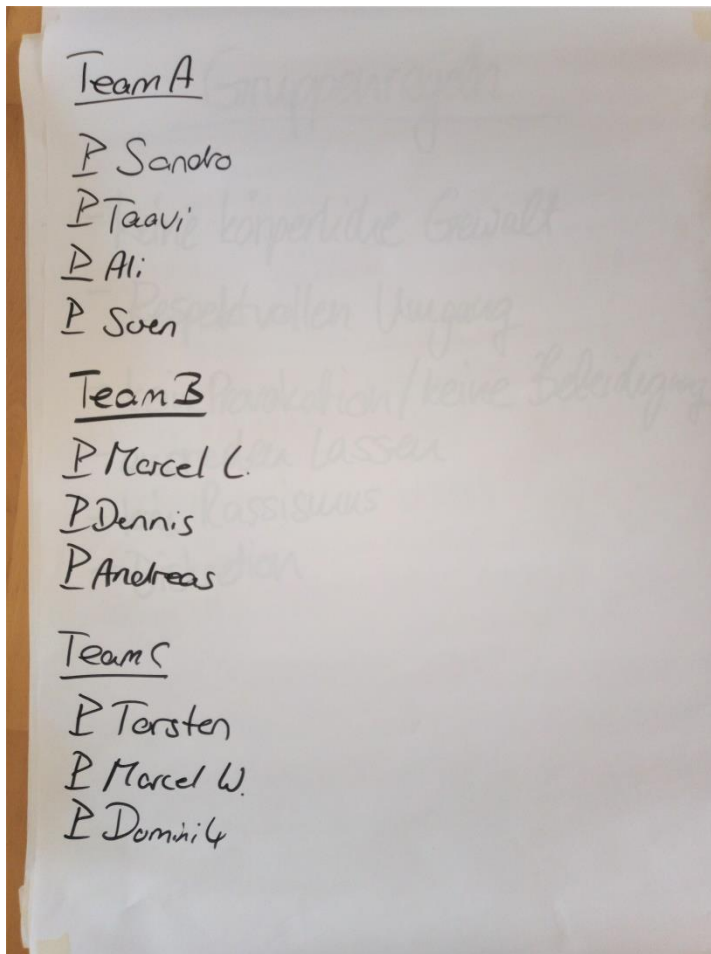 Team A
P Sandro
P Taavi
P Ali
P Sven
Team B
P Marcel L.
P Dennis
P Andreas
Team C
P Torsten
P Marcel W.
P Dominik
Gruppenregeln
- keine körperliche Gewalt
- Respektvollen Umgang
Provokation / keine Beleidigung
lassen
Rassismus